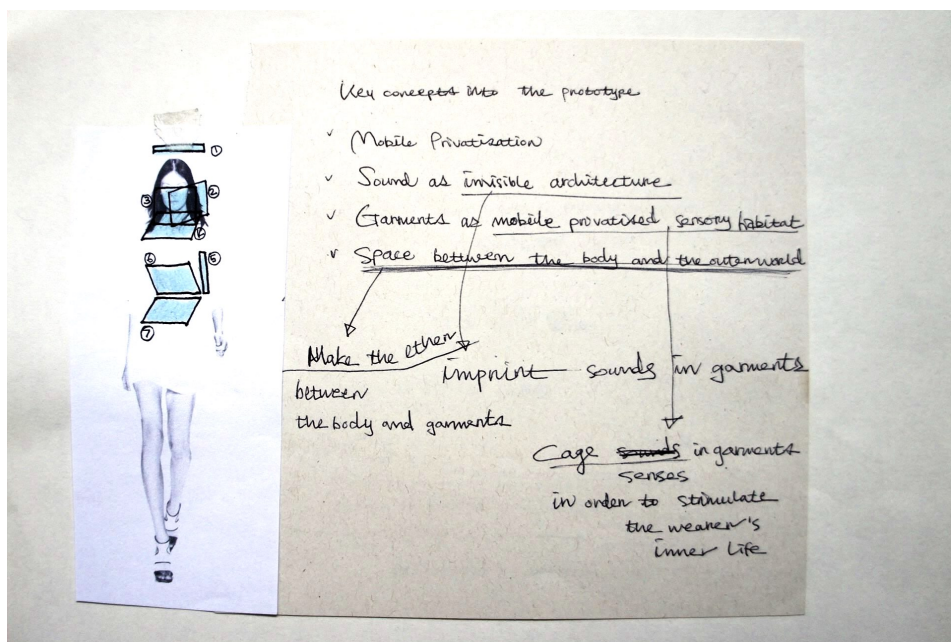 Key concepts into the prototype
✓ Mobile Privatization
✓ Sound as invisible architecture
✓ Garments as mobile privatised sensory habitat
✓ Space between the body and the outerworld
Make the ether
between
the body and garments
imprint sounds in garments
Cage sounds in garments
senses
in order to stimulate
the wearer's
inner life
①
②
③
⑤
⑥
⑦